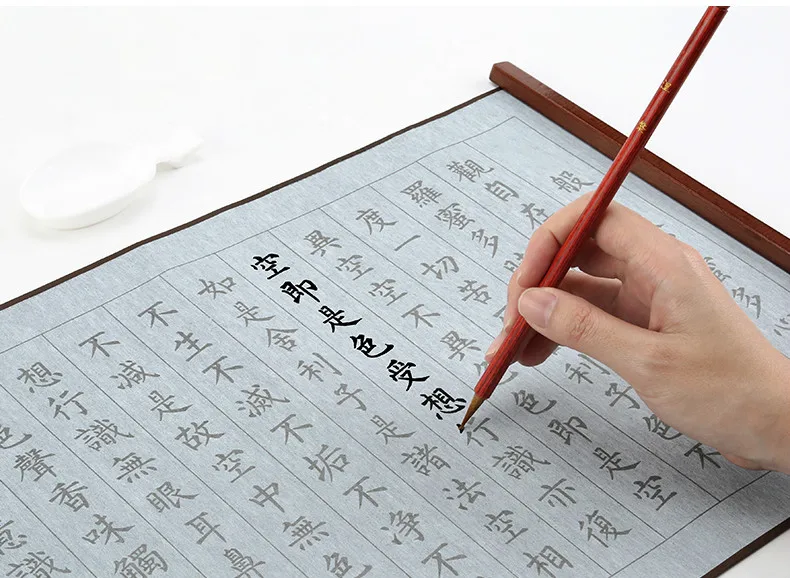 般多
觀自在
羅蜜多
度一切苦利子色不
異空空不異色色即是空
空即是色受想行識亦復
如是舍利子是諸法空相
不生不滅不垢不淨不
不減是故空中無色
想行識無眼耳鼻
色聲香味觸
識